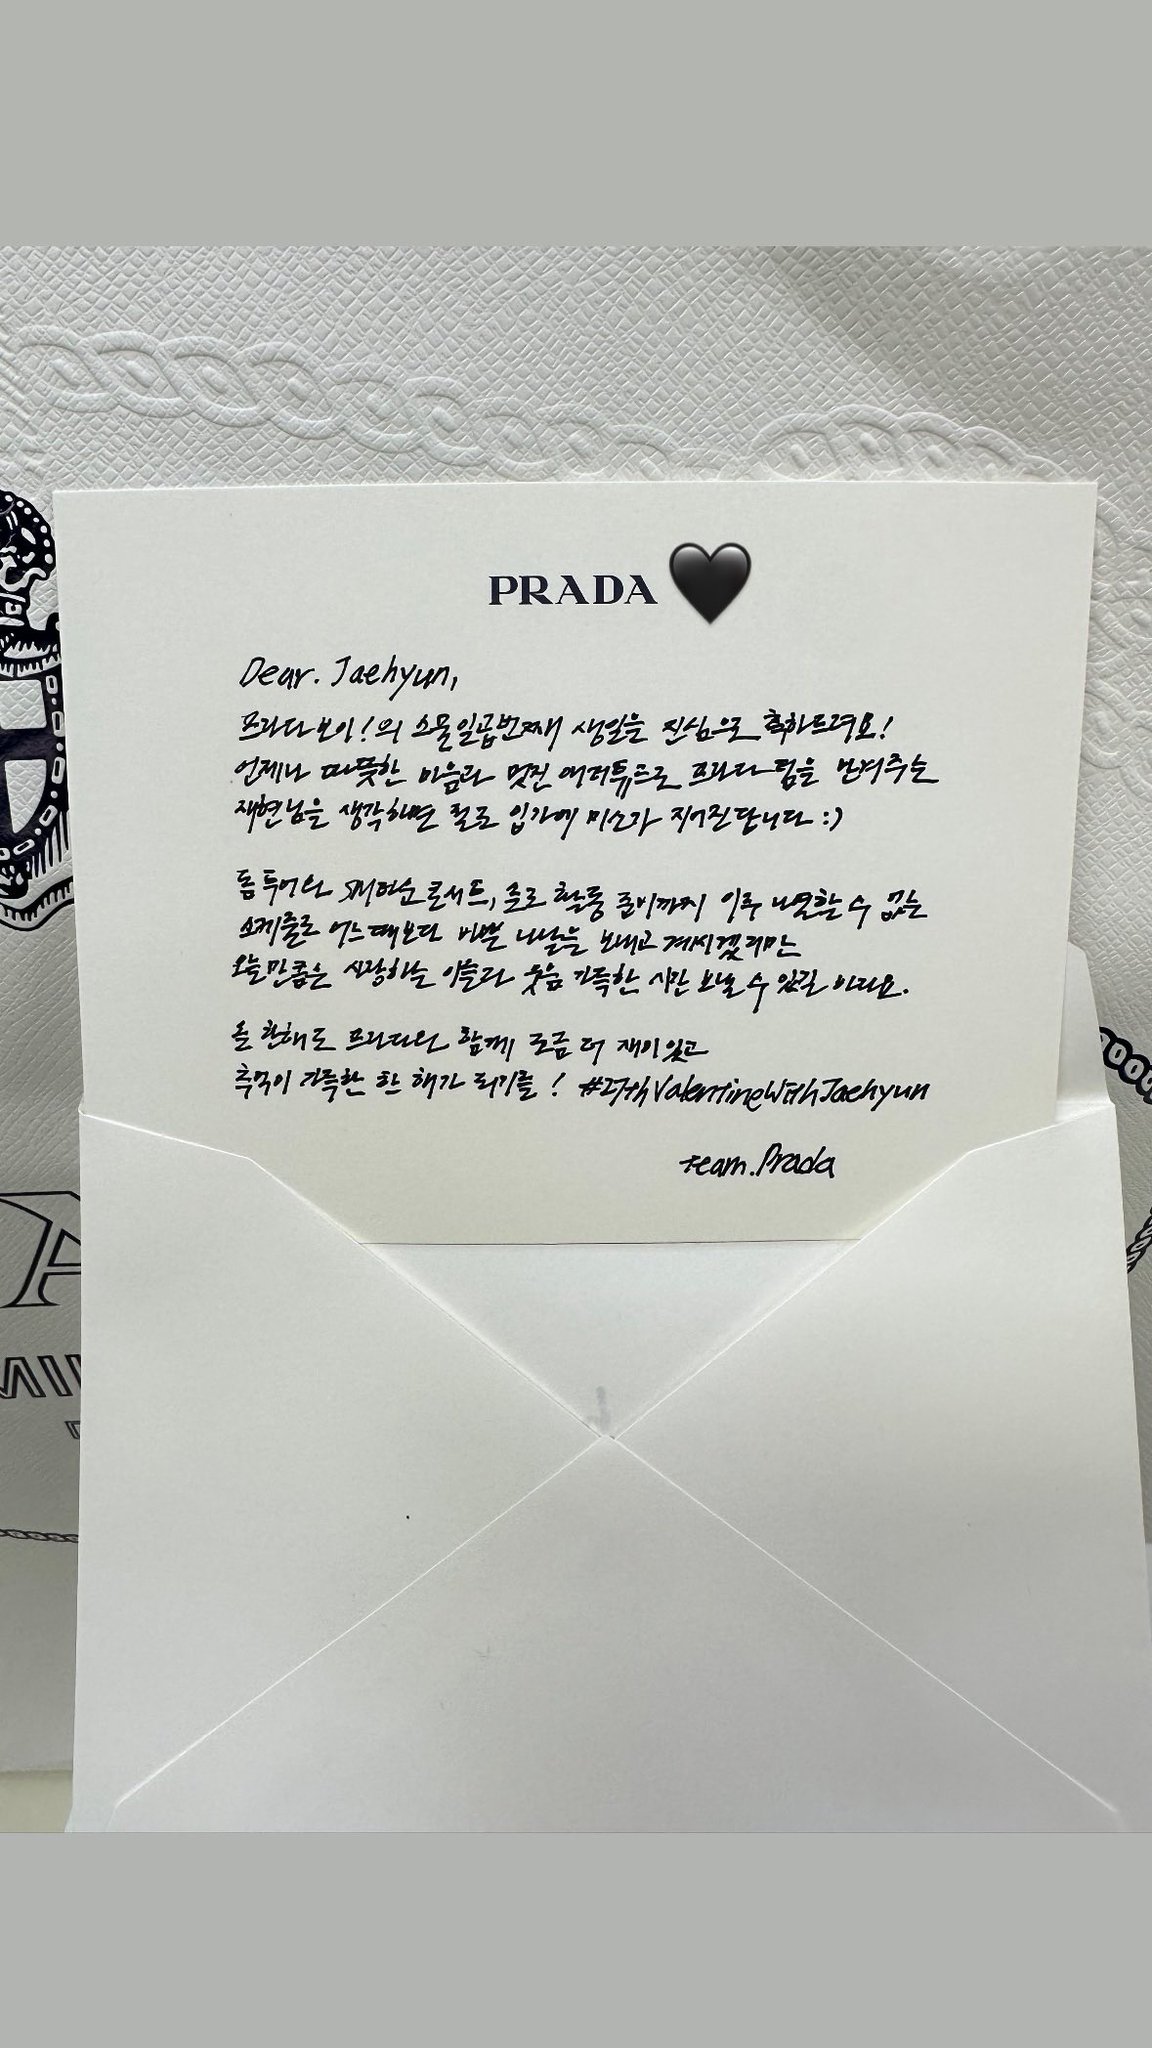 PRADA
Dear. Jaehyun,
프라다 보이!의 스물일곱번째 생일을 진심으로 축하드려요!
언제나 따뜻한 마음과 멋진 애티튜드로 프라다 팀을 반겨주는
재현님을 생각하면 절로 입가에 미소가 지어진답니다 :)
돔 투어와 콘서트, 솔로 활동 준비까지 이루 나열할 수 없는
스케줄로 어느때보다 바쁜 나날을 보내고 계시겠지만
오늘만큼은 사랑하는 이들과 웃음 가득한 시간 보낼 수 있길 바라요.
올 한해도 프라다와 함께 조금 더 재미있고
추억이 가득한 한 해가 되기를! #27thValentineWithJaehyun
team.Prada
A
MI